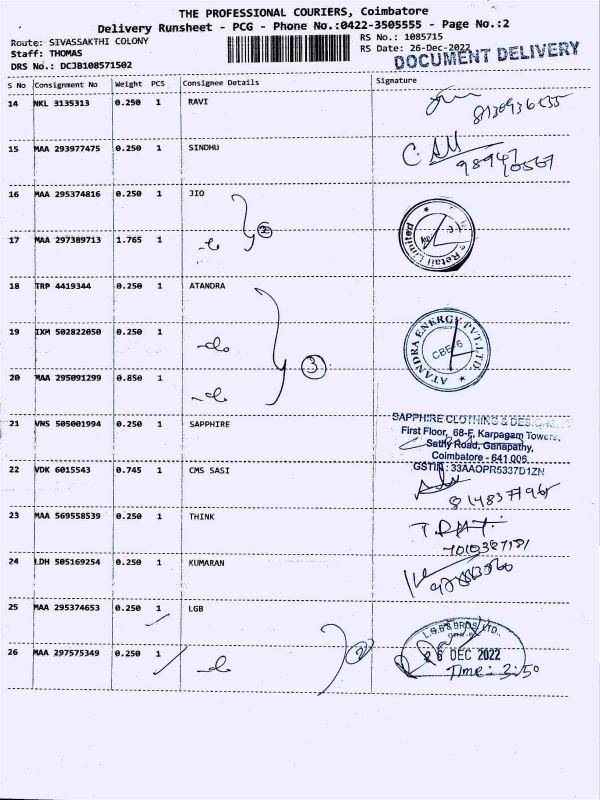 THE PROFESSIONAL COURIERS, Coimbatore
Delivery Runsheet - PCG - Phone No.:0422-3505555 - Page No.:2
Route: SIVASSAKTHI COLONY
Staff: THOMAS
DRS No.: DCJB108571502
RS No.: 1085715
RS Date: 26-Dec-2022
DOCUMENT DELIVERY
S No Consignment No Weight PCS Consignee Details Signature
14 NKL 3135313 0.250 1 RAVI
15 MAA 293977475 0.250 1 SINDHU
16 MAA 295374816 0.250 1 JIO
17 MAA 297389713 1.765 1 -do
2
Retail Limited
18 TRP 4419344 0.250 1 ATANDRA
19 IXM 502822050 0.250 1 -do
20 MAA 295091299 0.850 1 -do
3
ATANDRA ENERGY PVT.LTD.
CBE-6
21 VNS 505001994 0.250 1 SAPPHIRE
SAPPHIRE CLOTHING & DESIGN
First Floor, 68-F, Karpagam Towers,
Sathy Road, Ganapathy,
Coimbatore - 641 006.
GSTIN : 33AAOPR5337D1ZN
22 VDK 6015543 0.745 1 CMS SASI
8148377965
23 MAA 569558539 0.250 1 THINK
24 LDH 505169254 0.250 1 KUMARAN
25 MAA 295374653 0.250 1 LGB
26 MAA 297575349 0.250 1 -do
2
L.G.B & BROS LTD.,
26 DEC 2022
Time: 3:50